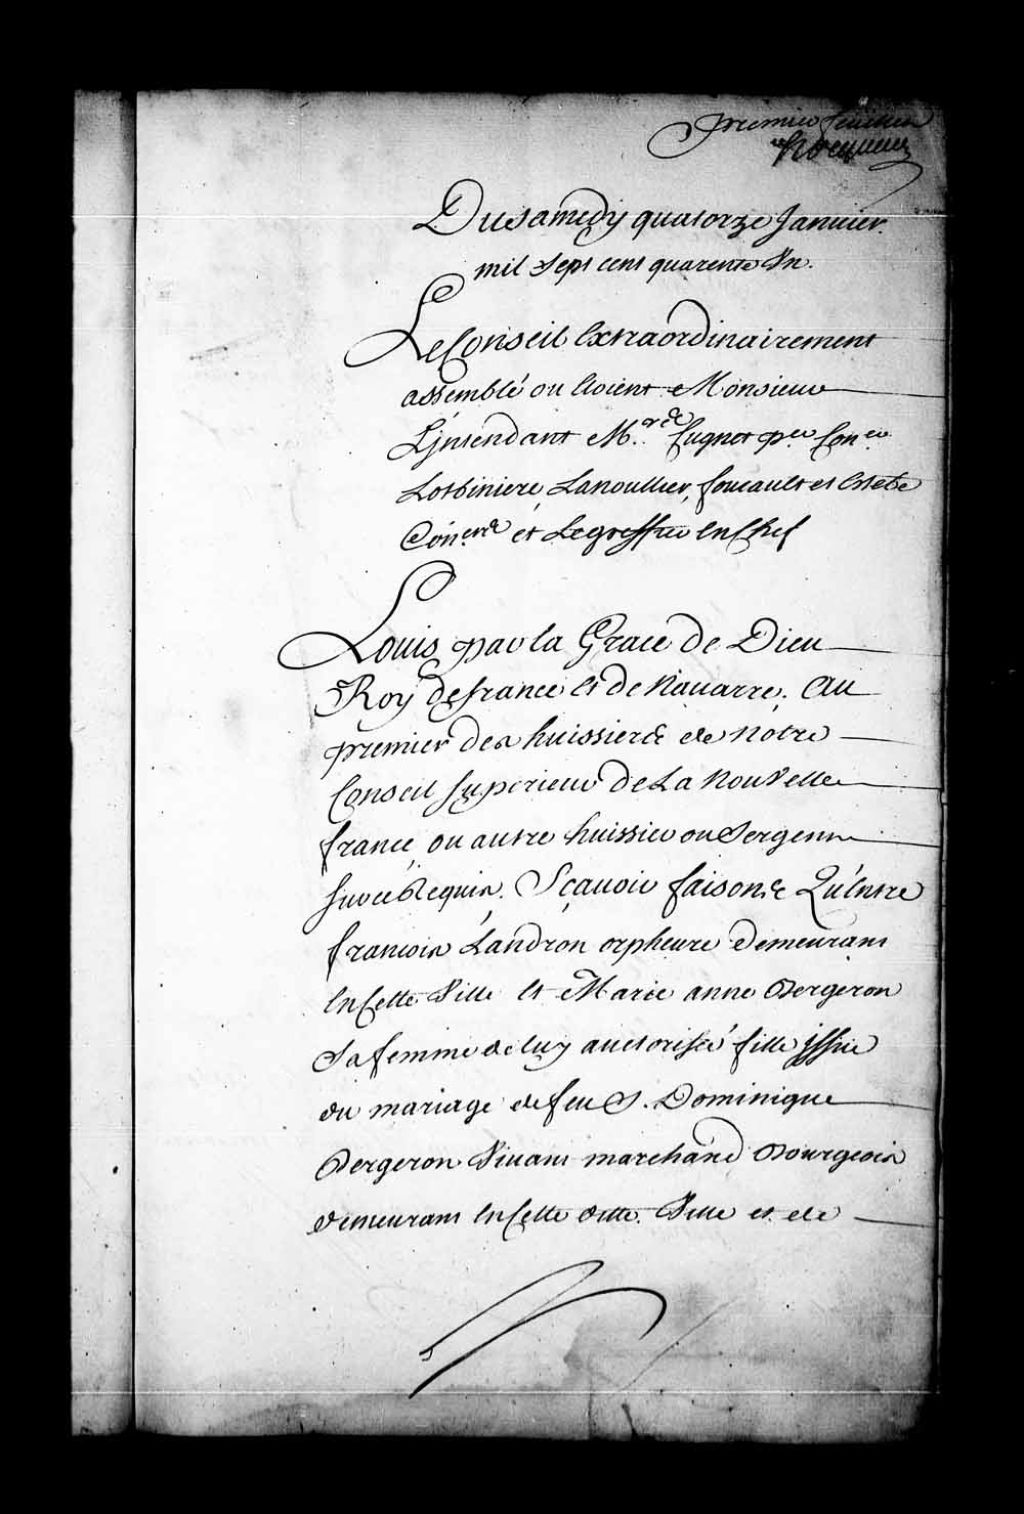 premier feuillet
Hocquart
Du samedy quatorze Janvier
mil sept cent quarente Un.
Le Conseil Extraordinairement
assemblé ou Etoient Monsieur
L'jntendant M.rs Cugnet p.er Con.er
Lotbiniere, Lanoullier, foucault et Estebe
Con.ers et Le greffier En Chef
Louis par la Grace de Dieu
Roy de france Et de Navarre. Au
premier des huissiers de notre
Conseil Superieur De La Nouvelle
france, ou autre huissier ou Sergent
sur ce Requis. Sçavoir faisons Qu'Entre
francois Landron orpheure Demeurant
En Cette Ville Et Marie anne Bergeron
Sa femme de luy auctorisée fille jssue
du mariage de feu S. Dominique
Bergeron Vivant marchand Bourgeois
demeurant En Cette ditte Ville et de